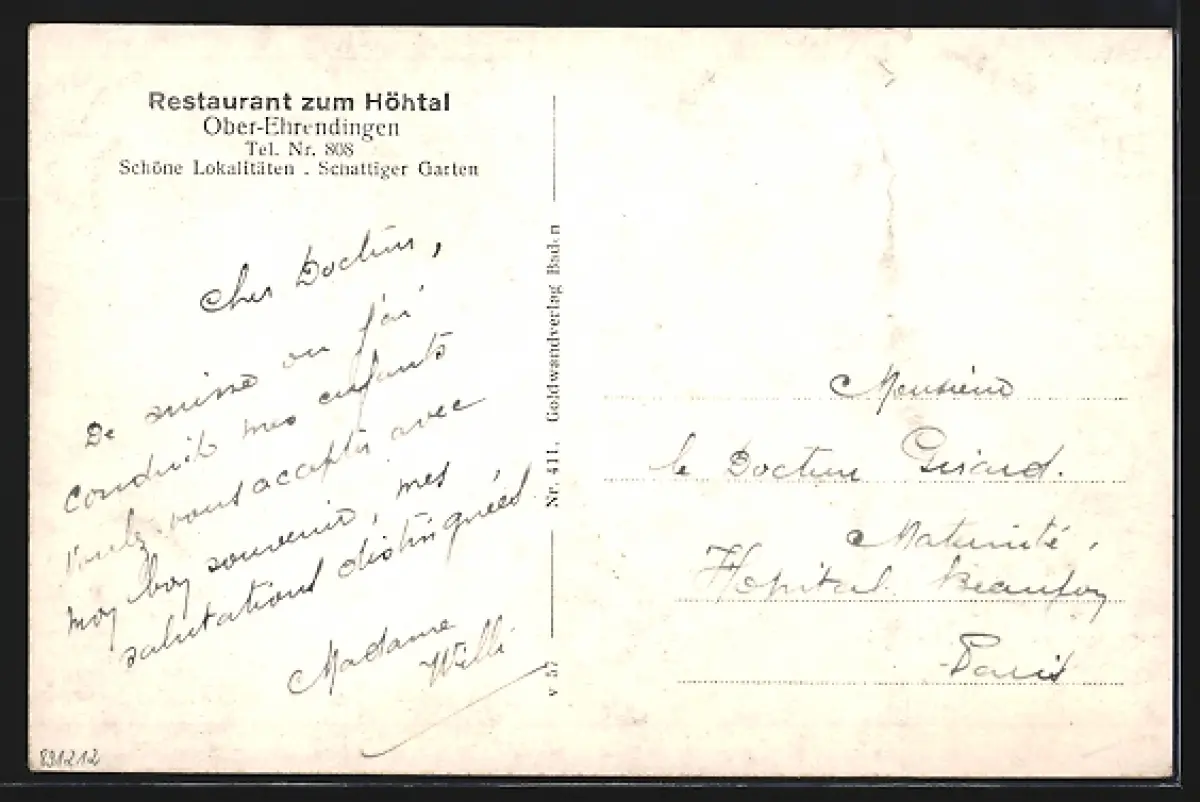 Restaurant zum Höhtal
Ober-Ehrendingen
Tel. Nr. 808
Schöne Lokalitäten . Schattiger Garten
Cher Docteur,
De suisse ou j'ai
conduit mes enfants
voulez vous accepter avec
moy boy souvenir, mes
salutations distinguées
Madame
Willi
Nr. 411, Goldwandverlag Baden
v 57
Monsieur
le Docteur Girard.
Maternité,
Hopital Beaujon
Paris
891212